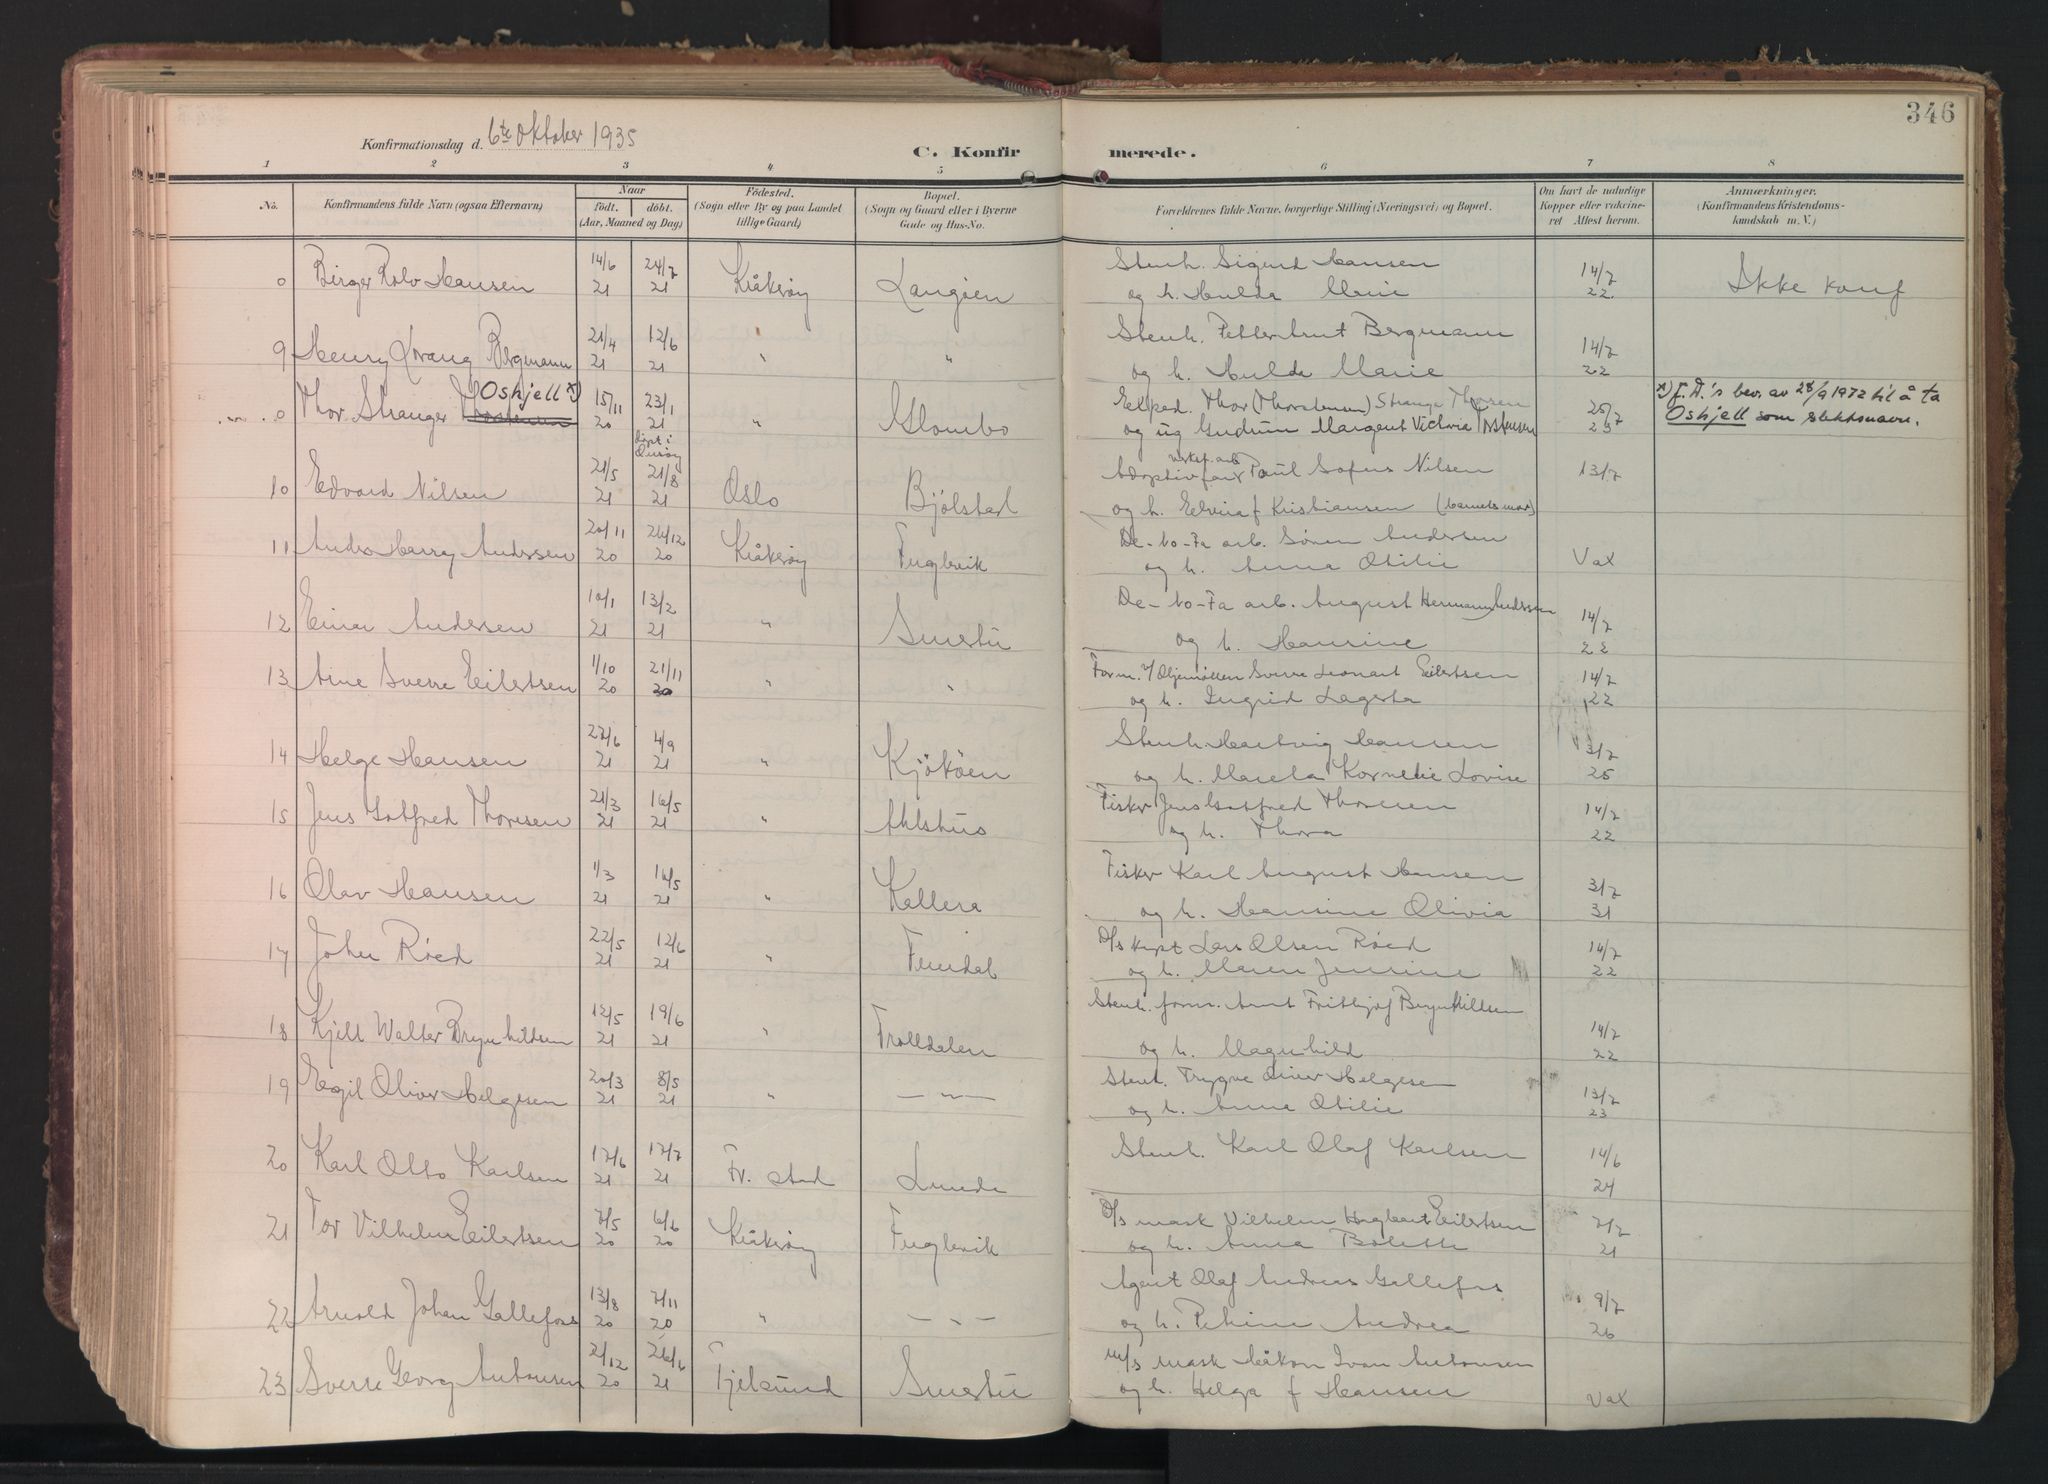 346
Konfirmationsdag d. 6te Oktober 1935
C. Konfirmerede.
1 2 3 4 5 6 7 8
No. Konfirmandens fulde Navn (ogsaa Efternavn). Naar født. døbt. (Aar, Maaned og Dag.) Fødested. (Sogn eller By og paa Landet tillige Gaard) Bopæl. (Sogn og Gaard eller i Byerne Gade og Hus-No. Forældrenes fulde Navne, borgerlige Stilling (Næringsvei) og Bopæl. Om havt de naturlige Kopper eller vaccineret Attest herom. Anmærkninger. (Konfirmandens Kristendomskundskab m. V.)
0 Birger Rolv Hansen 14/6 21 24/7 21 Kråkerøy Langøen Stenh. Sigurd Hansen
og h. Hulda Marie 14/7 22 Ikke konf
9 Henry Bergmann 21/4 21 12/6 21 " " Stenh. Petter Bergmann
og h. Hulda Marie 14/7 22
0 Thor Stranger Oshjell x) 15/11 20 23/1 21 " Glombo Thor (Thorstensen) Strange Thorsen
og ug Gudrun Margent Victoria Torstensen 25/7 x) F.D.'s bev. av 28/9 1972 til å ta
Oshjell som slektsnavn.
døpt i
10 Edvard Nilsen 21/5 21 21/8 21 Oslo Bjölstad Adoptivfar Paul Sofus Nilsen 13/7
og h. f Kristiansen (barnets mor)
11 Harry Andersen 20/11 20 26/12 20 Kråkerøy Fuglevik De-No-Fa arb. Sören Andersen
og h. Anna Otilie Vax
12 Einar Andersen 10/1 21 13/2 21 " Smertu De-No-Fa arb. August Hermann Andersen
og h. Hansine 14/7 22
13 Arne Sverre Eilertsen 1/10 20 21/11 20 " " Form. v/ Oljemöllen Sverre Leonart Eilertsen
og h. Ingrid Lagerta 14/7 22
14 Helge Hansen 27/6 21 4/9 21 " Kjököen Stenh. Hartvig Hansen
og h. Kornelie Lovise 3/7 25
15 Jens Gotfred Thoresen 21/3 21 16/5 21 " Ahlshus Fisker Jens Gotfred Thoresen
og h. Thora 14/7 22
16 Olav Hansen 1/3 21 16/5 21 " Kallera Fisker Karl August Hansen
og h. Hansine Olivia 3/7 31
17 John Röed 22/5 21 12/6 21 " D/s kapt Lars Olsen Röed
og h. Maren Jensine 14/7 22
18 Kjell Walter Brynhildsen 12/5 21 19/6 21 " Trolldalen Stenh. form. Arnt Fritbjof Brynhildsen
og h. Magnhild 14/7 22
19 Egil Oliver Helgesen 20/3 21 8/5 21 " — " — Stenh. Trygve Helgesen
og h. Anna Otilie 13/7 23
20 Karl Otto Karlsen 17/6 21 17/7 21 Fr. stad Lunde Stenh. Karl Olaf Karlsen 14/6 24
21 Tor Vilhelm Eilertsen 7/5 20 6/6 20 Kråkerøy Fuglevik D/s mask Vilhelm Hagbart Eilertsen
og h. Anna Bolette 7/7 21
22 Arnold Johan Gallefos 13/8 20 7/11 20 " — " — Agent Olaf Andreas Gallefos
og h. Petrine Andrea 9/7 26
23 Sverre Georg Antonsen 2/12 20 26/6 21 Tjelsund Smertu M/s mask Håkon Ivan Antonsen
og h. Helga f Hansen Vax